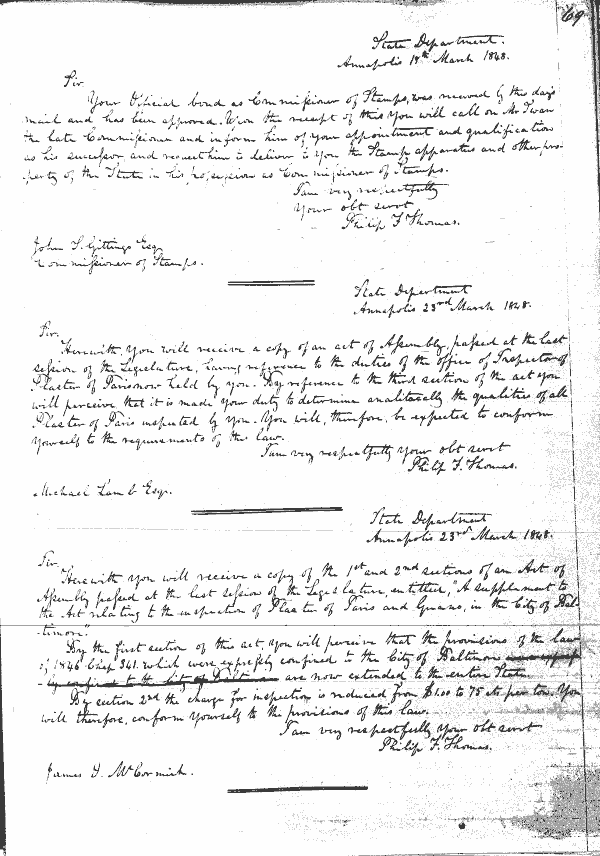 69
State Department.
Annapolis 18th March 1848.
Sir
Your Official bond as Commissioner of Stamps, was received by this day's
mail and has been approved. Upon the receipt of this you will call on Mr
the late Commissioner and inform him of your appointment and qualification
as his successor, and request him to deliver to you the Stamp apparatus and other pro-
perty of the State in his possession as Commissioner of Stamps.
I am very respectfully
Your obt servt
Philip F Thomas.
John S. Gittings Esq
Commissioner of Stamps.
State Department
Annapolis 23rd March 1848.
Sir.
Herewith, you will receive a copy of an act of Assembly, passed at the last
session of the Legislature, having reference to the duties of the office of Inspector of
Plaster of Paris now held by you. By reference to the third section of the act you
will perceive that it is made your duty to determine analitically the qualities of all
Plaster of Paris inspected by you. You will, therefore, be expected to conform
yourself to the requirements of this law.
I am very respectfully your obt servt
Philip F. Thomas.
Michael Lamb Esqr.
State Department
Annapolis 23rd March 1848.
Sir.
Herewith you will receive a copy of the 1st and 2nd sections of an Act of
Assembly passed at the last session of the Legislature, entitled, "A supplement to
the Act relating to the inspection of Plaster of Paris and Guano, in the City of Bal-
timore.
By the first section of this act, you will perceive that the provisions of the law
of 1846 Chap 341. which were expressly confined to the City of Baltimore
-ly confined to the City of Baltimore are now extended to the entire State.
By section 2nd the charge for inspection is reduced from $1.00 to 75 cts per ton. You
will therefore, conform yourself to the provisions of this law.
I am very respectfully your obt servt
Philip F. Thomas.
James L. McCormick.